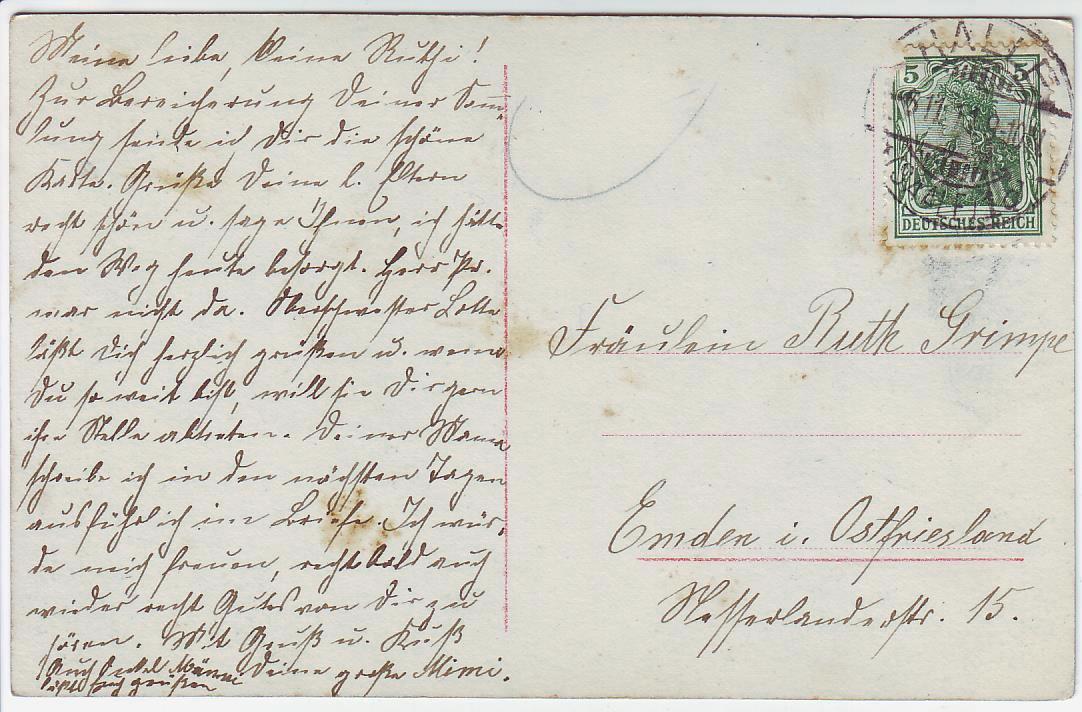 Meine liebe, kleine Ruthi!
Zur Bereicherung Deiner Samm-
lung sende ich Dir die schöne
Karte. Grüße Deine l. Eltern
recht schön u. sage Ihnen, ich hätte
den Weg heute besorgt. Herr Pr.
war nicht da. Oberschwester Lotte
läßt Dich herzlich grüßen u. wenn
Du so weit bist, will sie Dir gern
ihre Stelle abtreten. Deiner Mama
schreibe ich in den nächsten Tagen
ausführlich im Briefe. Ich wür-
de mich freuen, recht bald auch
wieder recht Gutes von Dir zu
hören. Mit Gruß u. Kuß
Deine große Mimi.
Auch Onkel
läßt Euch grüßen
DEUTSCHES REICH
5 5
HALLE
Fräulein Ruth Grimpe
Emden i. Ostfriesland
Nesserlanderstr. 15.